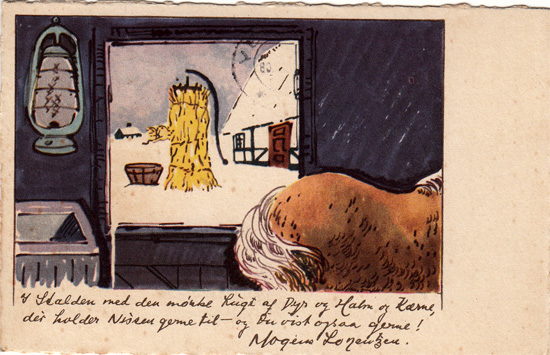 I Stalden med den mörke Lugt af Dyr og Halm og Kærne,
der holder Nissen gerne til – og Du vist ogsaa gerne!
Mogens Lorentzen.